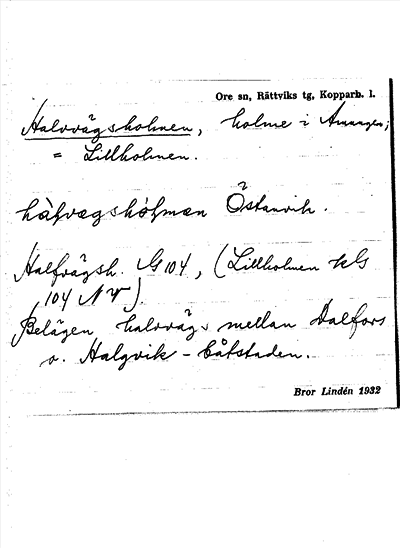 Ore sn, Rättviks tg, Kopparb. l.
Halvvägsholmen, holme i Amungen;
= Lillholmen.
hàlvægshólmæn Östanvik.
Halfvägsh. G 104, (Lillholmen kG
104 NV).
Belägen halvvägs mellan Dalfors
o. Halgvik - båtstaden.
Bror Lindén 1932